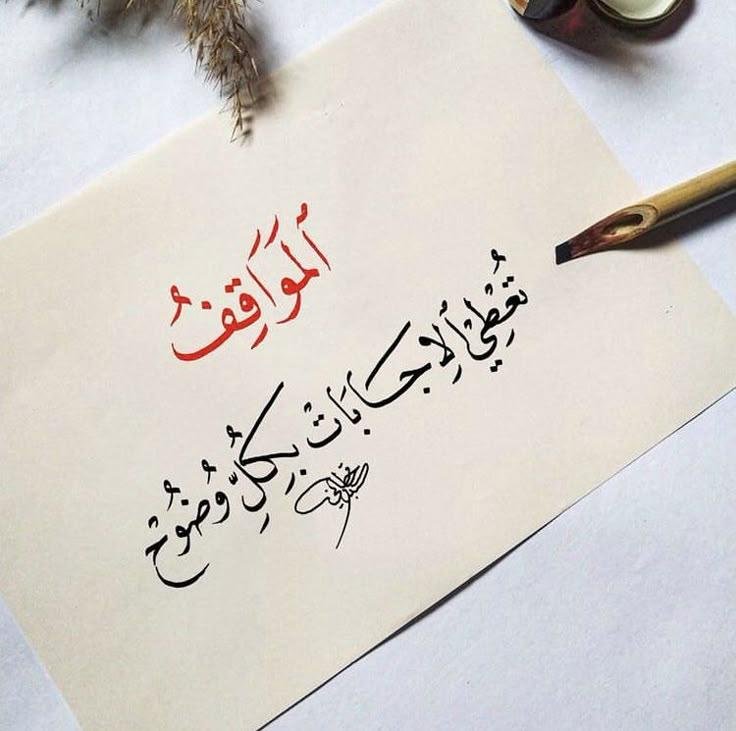 اَلمَوَاقِفُ
تُعْطِيْ اَلاِجَابَاتْ بِكُلِّ وُضُوُحْ